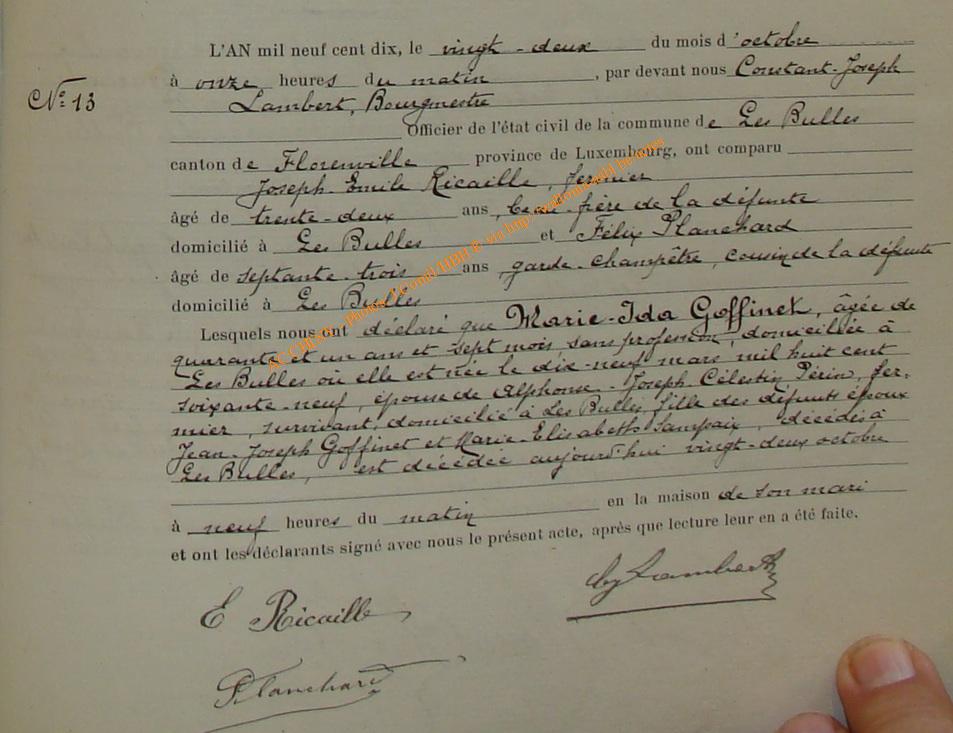 L'AN mil neuf cent dix, le vingt-deux du mois d'octobre
N° 13
à onze heures du matin, par devant nous Constant-Joseph
Lambert, Bourgmestre
Officier de l'état civil de la commune de Les Bulles
canton de Florenville province de Luxembourg, ont comparu
Joseph-Emile Ricaille, fermier
âgé de trente-deux ans, beau-frère de la défunte
domicilié à Les Bulles et Félix Planchard
âgé de septante-trois ans, garde-champêtre, cousin de la défunte
domicilié à Les Bulles
Lesquels nous ont déclaré que Marie-Ida Goffinet, âgée de
quarante et un ans et sept mois sans profession, domiciliée à
Les Bulles où elle est née le dix-neuf mars mil huit cent
soixante-neuf, épouse de Alphonse-Joseph-Célestin Périn, fer-
mier, survivant, domicilié à Les Bulles, fille des défunts époux
Jean-Joseph Goffinet et Marie-Elisabeth Sampaix, décédés à
Les Bulles, est décédée aujourd'hui vingt-deux octobre
à neuf heures du matin en la maison de son mari
et ont les déclarants signé avec nous le présent acte, après que lecture leur en a été faite.
Lambert
E Ricaille
Planchard